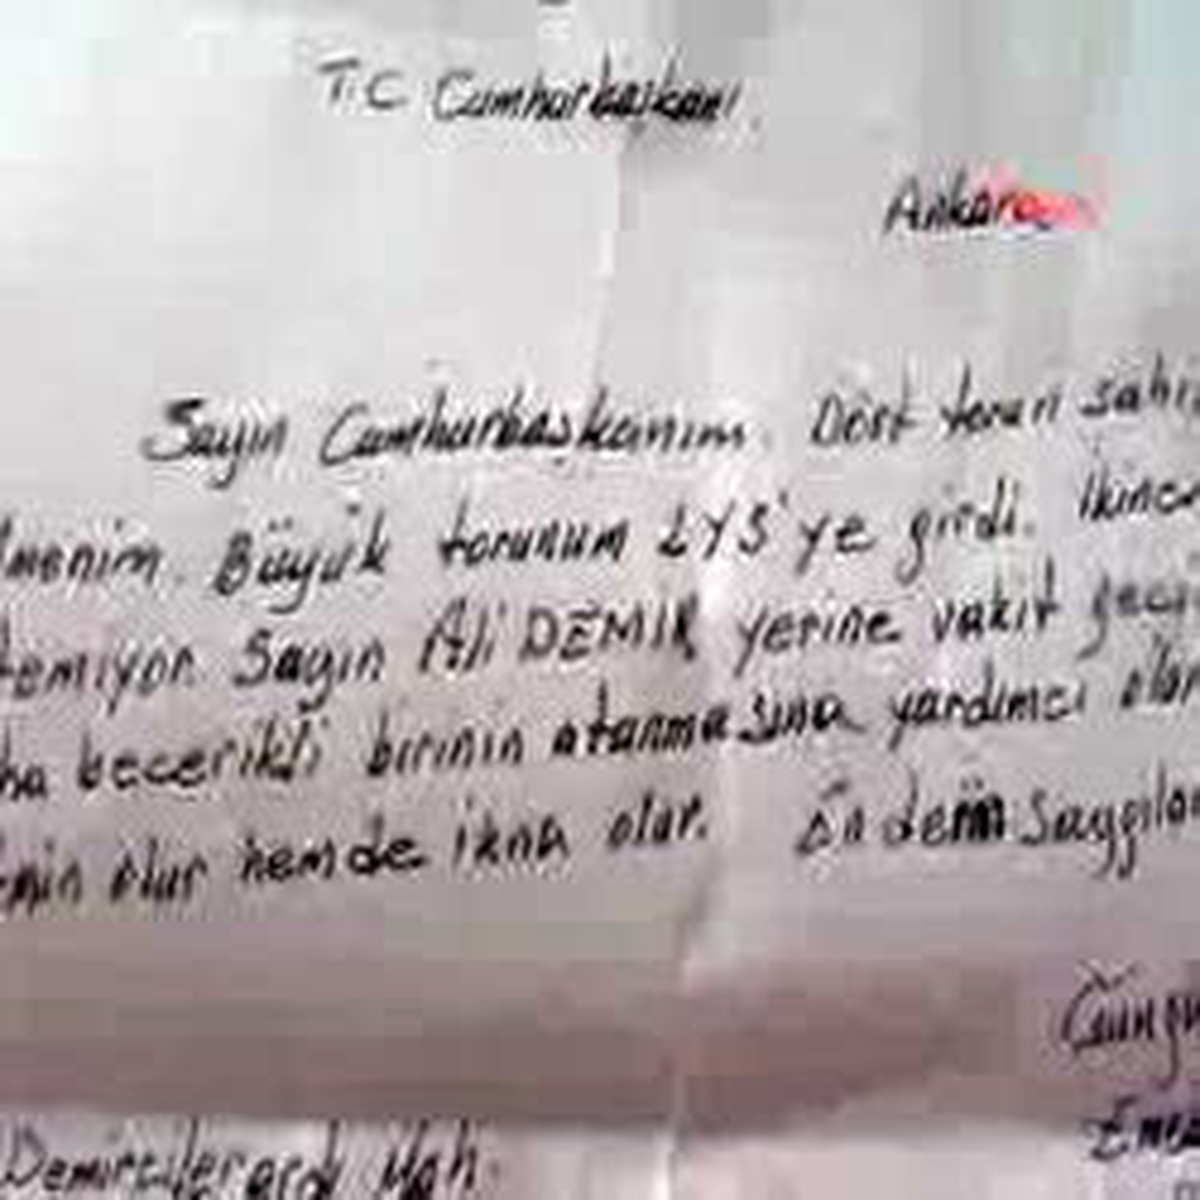 T.C Cumhurbaşkanı
Ankara
Sayın Cumhurbaşkanım. Dört torun sahi
menim. Büyük torunum LYS'ye girdi. İkinci
temiyor. Sayın Ali DEMİR yerine vakit geçi
ha becerikli birinin atanmasına yardımcı olur
emin olur hemde ikna olur. En derin Saygıla
Güngö
Eme
Demircilerardı Mah.